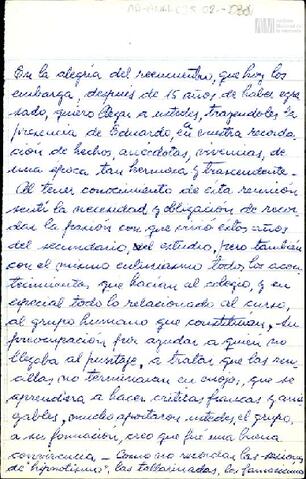 En la alegría del reencuentro, que hoy los
embarga, después de 15 años de haber egre
sado, quiero llegar a ustedes, trayendoles la
presencia de Eduardo, en vuestra recorda
ción de hechos, anécdotas, vivencias, de
una época tan hermosa y trascendente.-
Al tener conocimiento de esta reunión
sentí la necesidad y obligación de recor
dar la pasión con que vivió estos años
del secundario, del estudio, pero también
con el mismo entusiasmo todos los acon
tecimientos que hacían al colegio, y en
especial todo lo relacionado al curso,
al grupo humano que constituían. Su
preocupación por ayudar a quien no
llegaba al puntaje, a tratar que las ren
cillas no terminaran en enojo, que se
aprendiera a hacer críticas francas y ami
gables, mucho aportaron ustedes, el grupo,
a su formación, creo que fue una buena
convivencia - Como no recordar las sesiones
de "hipnotismo", las tallarinadas, las famosas